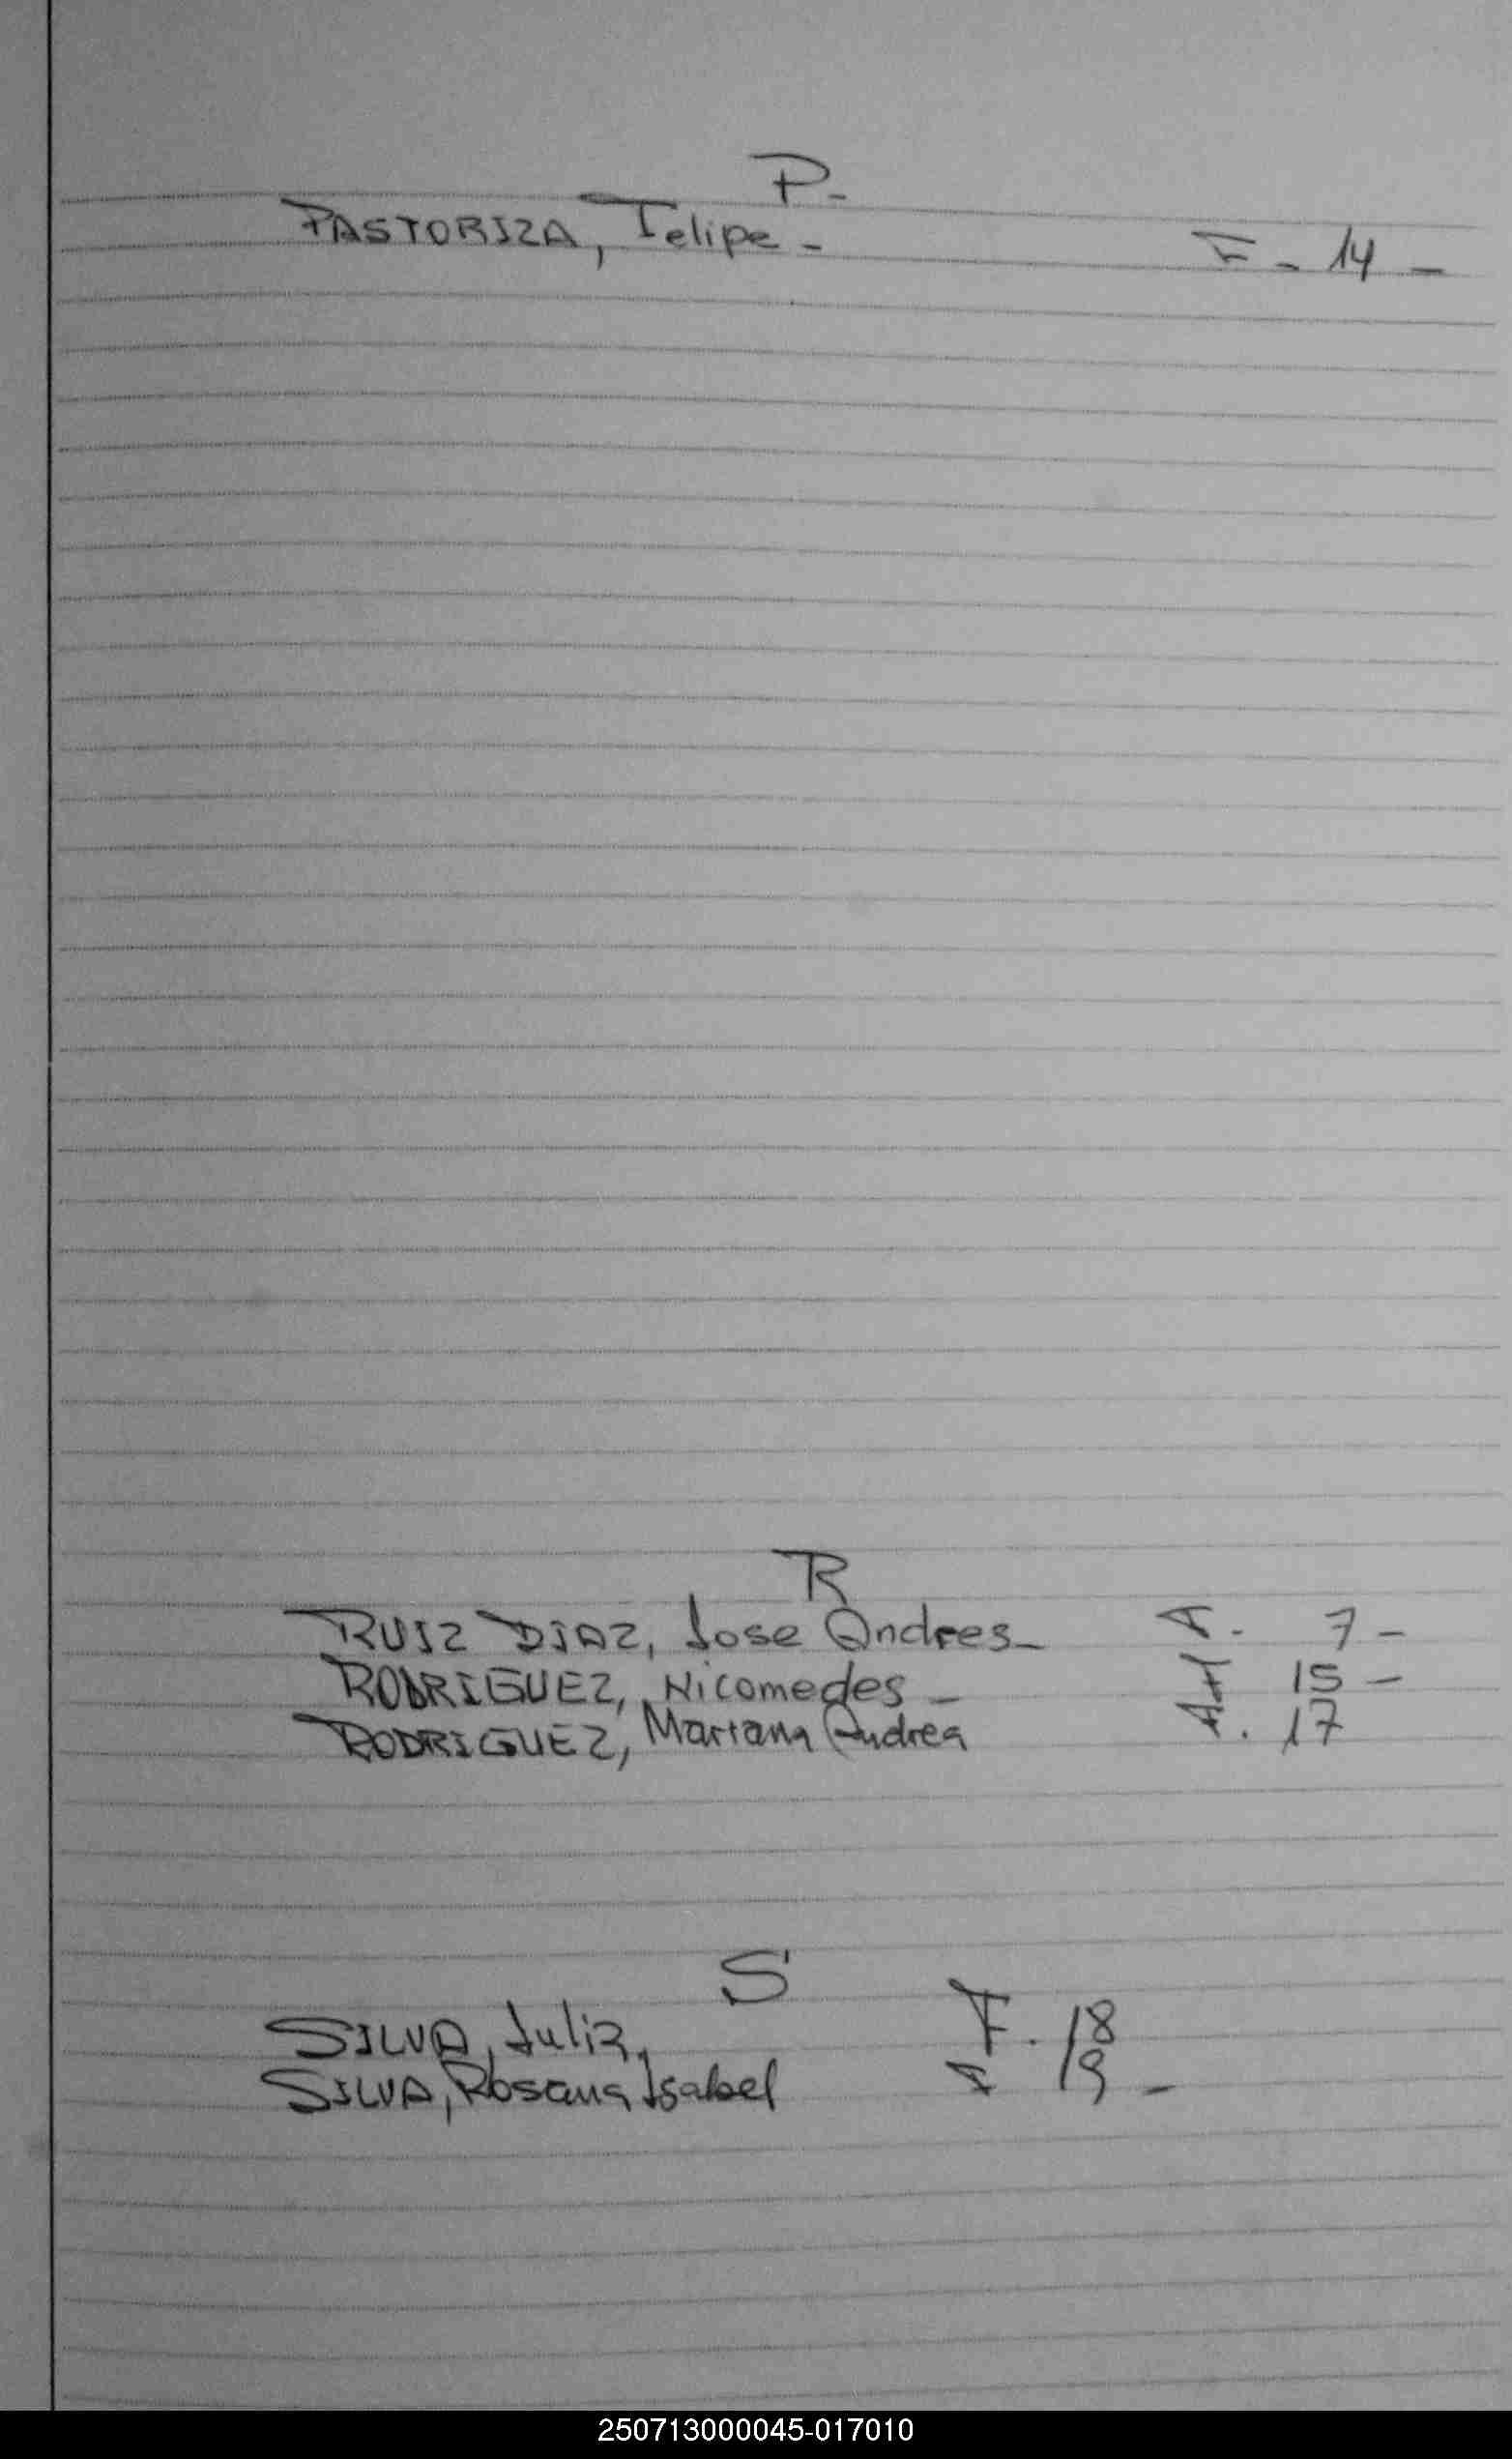 P-
PASTORIZA, Felipe - F - 14 -
R
RUIZ DIAZ, Jose Andres - F. 7 -
RODRIGUEZ, Nicomedes - F 15 -
RODRIGUEZ, Mariana Andrea F. 17
S
SILVA, Julia. F. 18
SILVA, Rosana Isabel F 19 -
250713000045-017010